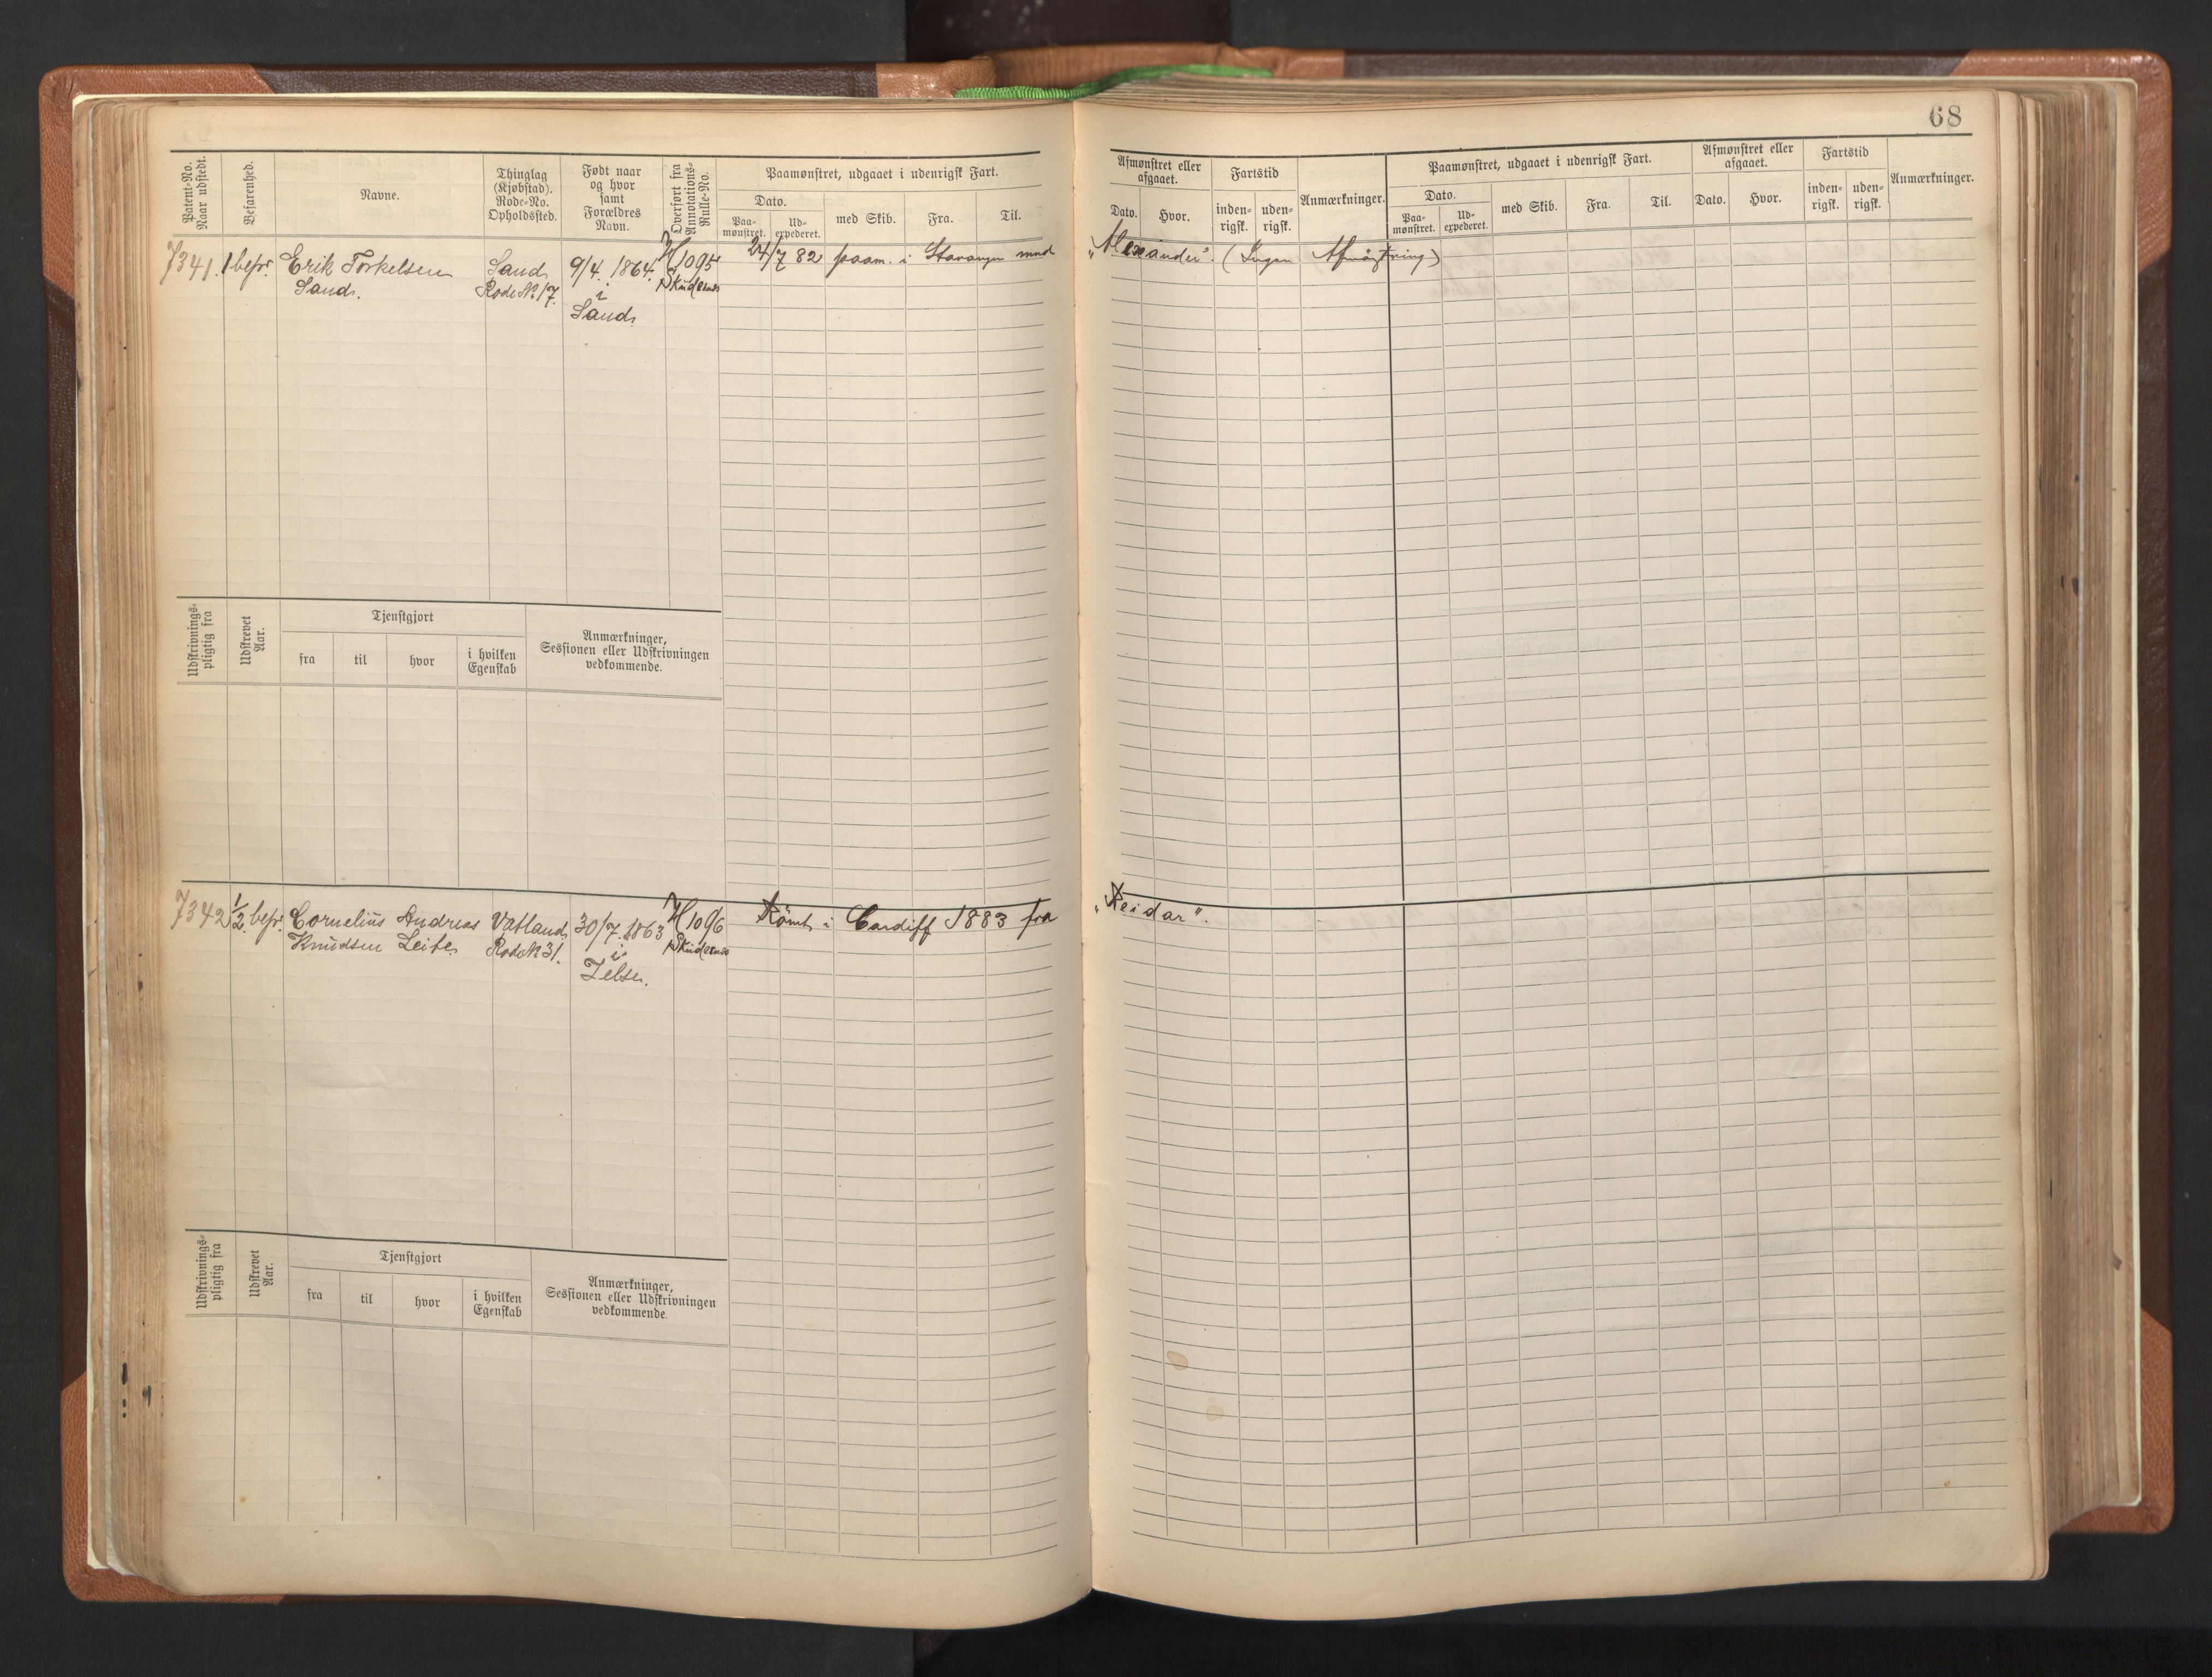 68
Patent-No. Naar udstedt.
Befarenhed.
Navne.
Thinglag (Kjøbstad). Rode-No. Opholdssted.
Født naar og hvor samt Forældres Navn.
Overført fra Annotations-Rulle-No.
Paamønstret, udgaaet i udenrigsk Fart.
Dato.
Paa-mønstret.
Ud-expederet.
med Skib.
Fra.
Til.
Afmønstret eller afgaaet.
Dato.
Hvor.
Fartstid
inden-rigsk.
uden-rigsk.
Anmærkninger.
Paamønstret, udgaaet i udenrigsk Fart.
Dato.
Paa-mønstret.
Ud-expederet.
med Skib.
Fra.
Til.
Afmønstret eller afgaaet.
Dato.
Hvor.
Fartstid
inden-rigsk.
uden-rigsk.
Anmærkninger.
7341. 1 befr. Erik Torkelsen Sand 9/4. 1864. H1095 24/7 82 paam. i Stavanger med „Alexander". (Ingen Afmøstring)
Sand. Rode No 17. i Skudesnes
Sand.
Udskrivnings-pligtig fra
Udskrevet Aar.
Tjenstgjort
fra
til
hvor
i hvilken Egenskab
Anmærkninger, Sessionen eller Udskrivningen vedkommende.
7342 1/2 befr. Cornelius Andreas Vatland 30/7. 1863 H1096 Römt i Cardiff 1883 fra „Reidar".
Knudsen Leite Rode N 31. i Skudesnes
Jelse.
Udskrivnings-pligtig fra
Udskrevet Aar.
Tjenstgjort
fra
til
hvor
i hvilken Egenskab
Anmærkninger, Sessionen eller Udskrivningen vedkommende.